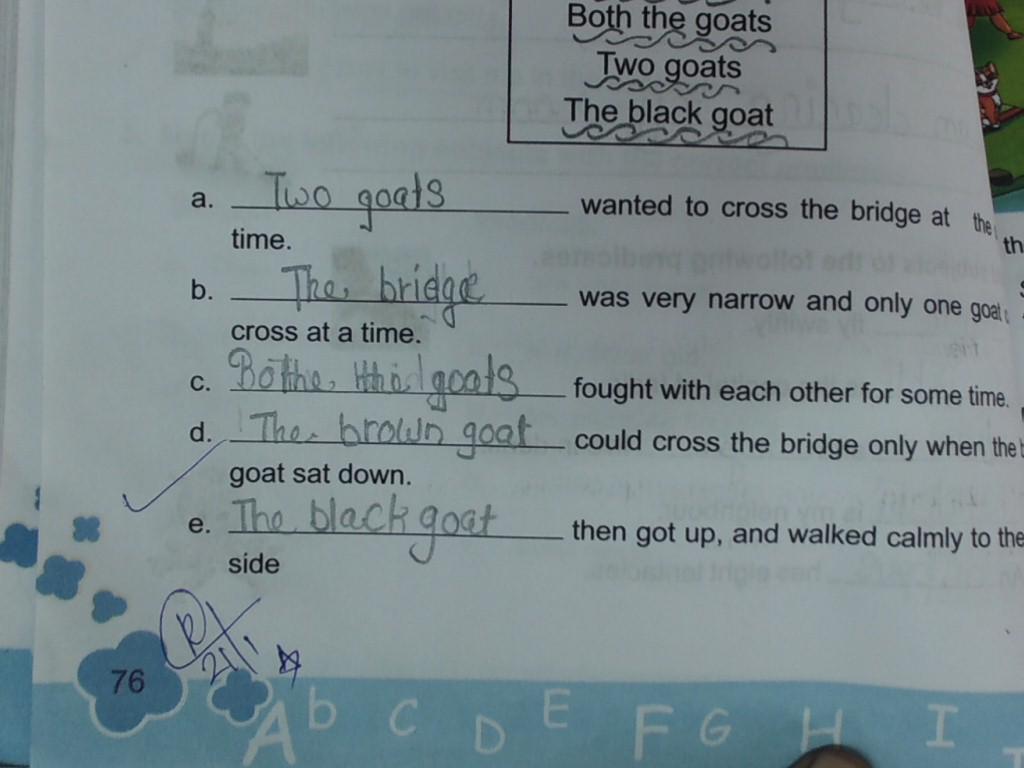 Both the goats
Two goats
The black goat
a. Two goats wanted to cross the bridge at the
time.
b. The bridge was very narrow and only one goat
cross at a time.
c. Bothe the goats fought with each other for some time.
d. The brown goat could cross the bridge only when the
goat sat down.
e. The black goat then got up, and walked calmly to the
side
R
21/1
76
A b C D E F G H I